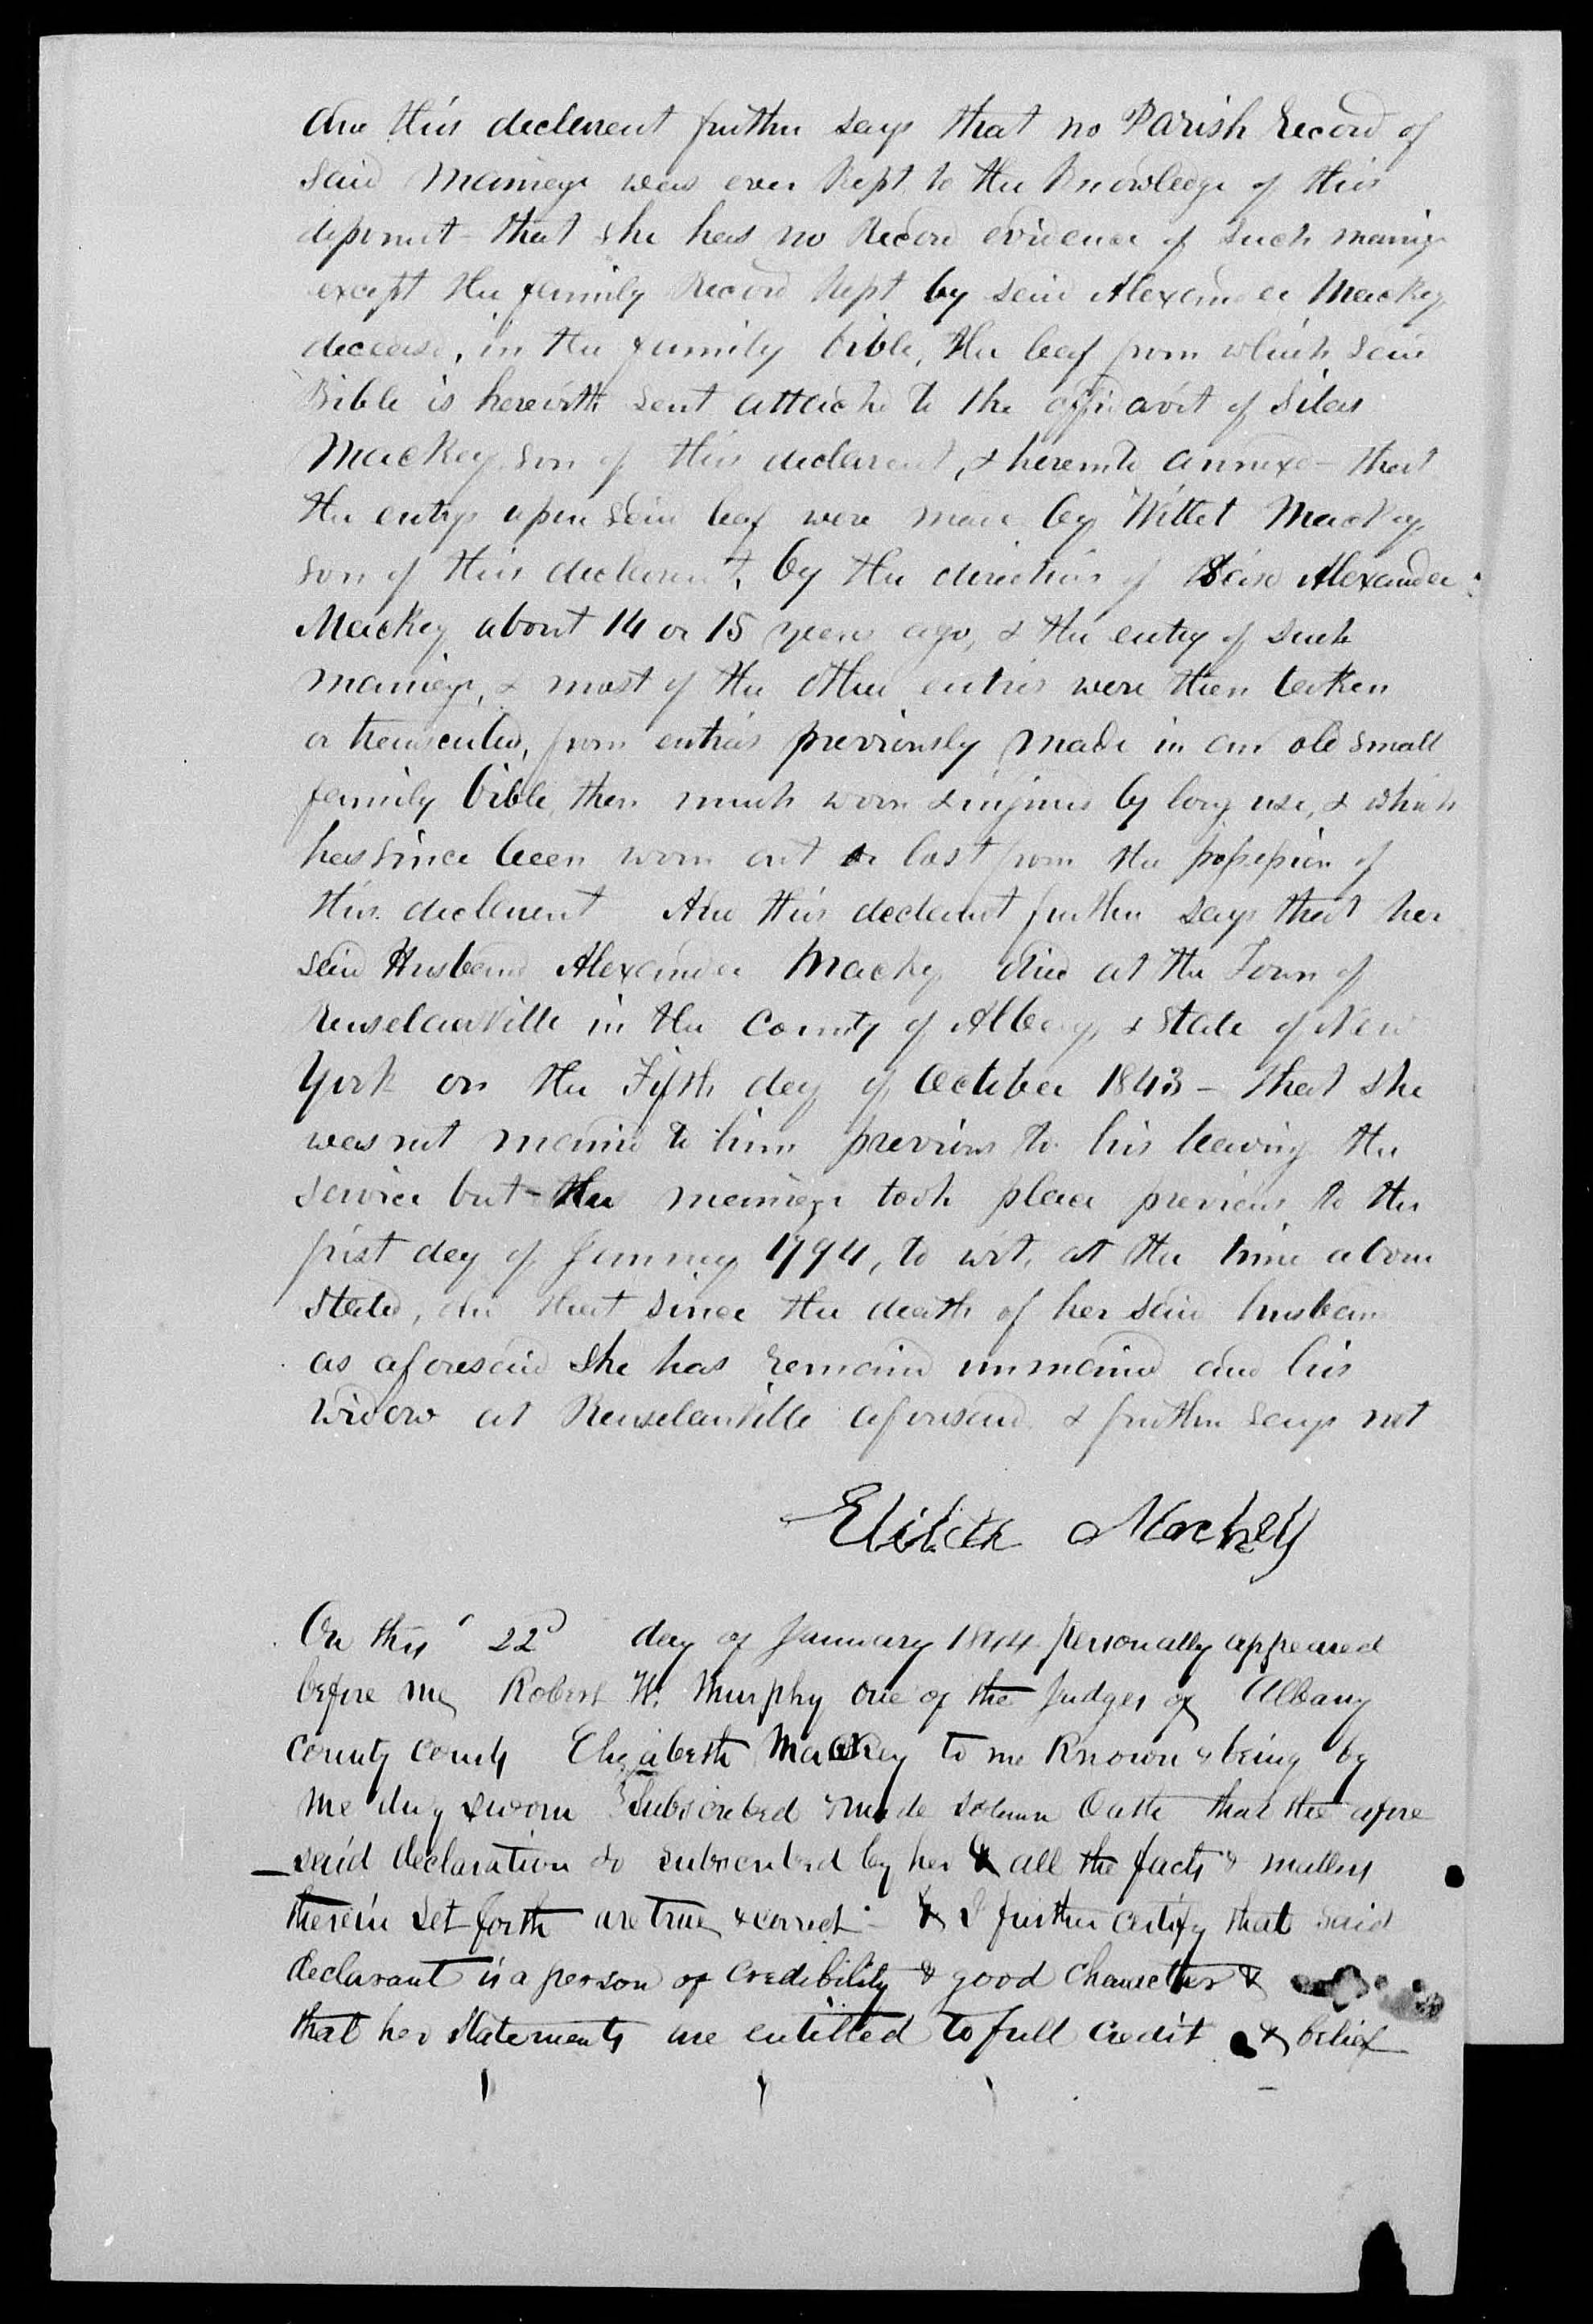 And this declarent further says that no Parish Record of
said Marriage was ever Kept to the Knowledge of this
deponent - that she has no Record evidence of such marriage
except the family Record Kept by said Alexander Mackey
deceased, in the family bible, the leaf from which said
Bible is herewith sent attached to the affidavit of Silas
Mackey son of this declarent, & hereunto annexed - that
the entrys upon said leaf were made by Willet Mackey
son of this declarent, by the direction of said Alexander
Mackey about 14 or 15 years ago, & the entry of such
marriage, & most of the other entries were then taken
or transcribed, from entries previously made in an old small
family bible, then much worn & injured by long use, & which
has since been worn out or lost from the possession of
this declarent And this declarent further says that her
said Husband Alexander Mackey died at the Town of
Renselaerville in the County of Albany & State of New
York on the Fifth day of October 1843 - that she
was not married to him previous to his leaving the
service but the marriage took place previous to the
first day of January 1794, to wit, at the time above
stated, and that since the death of her said husband
as aforesaid she has remained unmarried and his
widow at Renselaerville aforesaid & further says not
Elizibeth Mackey
On this 22d day of January 1844 personally appeared
before me Robert W. Murphy one of the Judges of Albany
County Courts Elizabeth Mackey to me Known & being by
me duly sworn Subscribed & made solemn Oath that the afore
said declaration so subscribed by her & all the facts & matters
therein set forth are true & correct - & I further certify that said
declarant is a person of credibility & good character &
that her statements are entitled to full credit & belief